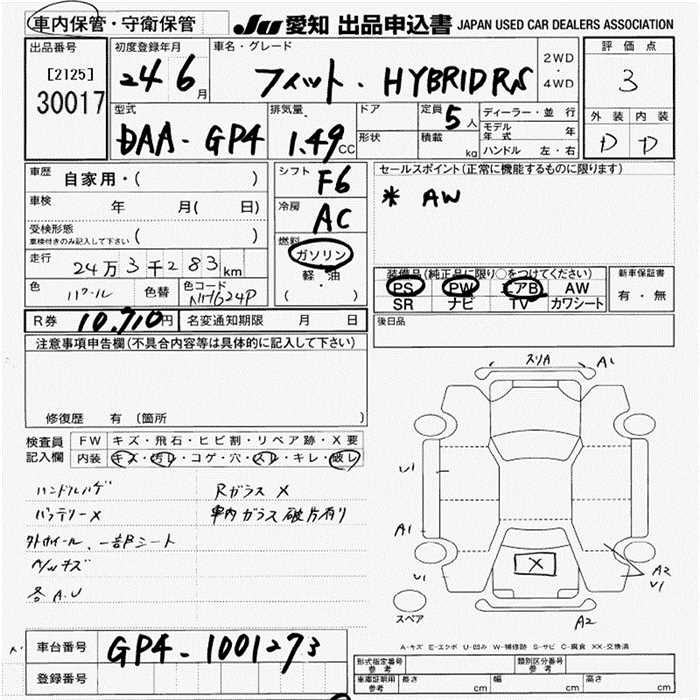 車内保管・守衛保管 JU 愛知 出品申込書 JAPAN USED CAR DEALERS ASSOCIATION
出品番号 初度登録年月 車名・グレード 評価点
[2125] 24 6月 フィット・HYBRID RS 2WD・4WD 3
30017
型式 排気量 ドア 定員 5人 ディーラー・並行 外装 内装
DAA-GP4 1.49CC 形状 積載 kg モデル年式 年 D D
ハンドル 左・右
車歴 自家用・( ) シフト F6 セールスポイント(正常に機能するものに限ります)
車検 年 月(日) 冷房 AC * AW
受検形態 ( )
車検付きのみ記入して下さい
走行 24万3千283km 燃料 ガソリン
軽・油
( )
色 パール 色替 色コード NH624P
装備品(純正品に限り○をつけてください) 新車保証書
PS PW エアB AW 有・無
SR ナビ TV カワシート
R券 10,710円 名変通知期限 月 日 後日品
注意事項申告欄(不具合内容等は具体的に記入して下さい)
修復歴 有 (箇所 )
検査員記入欄 FW キズ・飛石・ヒビ割・リペア跡・X要
内装 キズ・汚レ・コゲ・穴・スレ・キレ・破レ
ハンドルハゲ Rガラス X
バッテリーX 車内ガラス破片有り
外ホイール、一部シート
各A.U
スリA A1
U1
A1
U1
A2
U1
X
スペア
A2
A-キズ E-エクボ U-凹み W-補修跡 S-サビ C-腐食 XX-交換済
車台番号 GP4-1001273
登録番号
形式指定番号参考 類別区分番号参考
車庫証明用参考 長さ cm 幅 cm 高さ cm